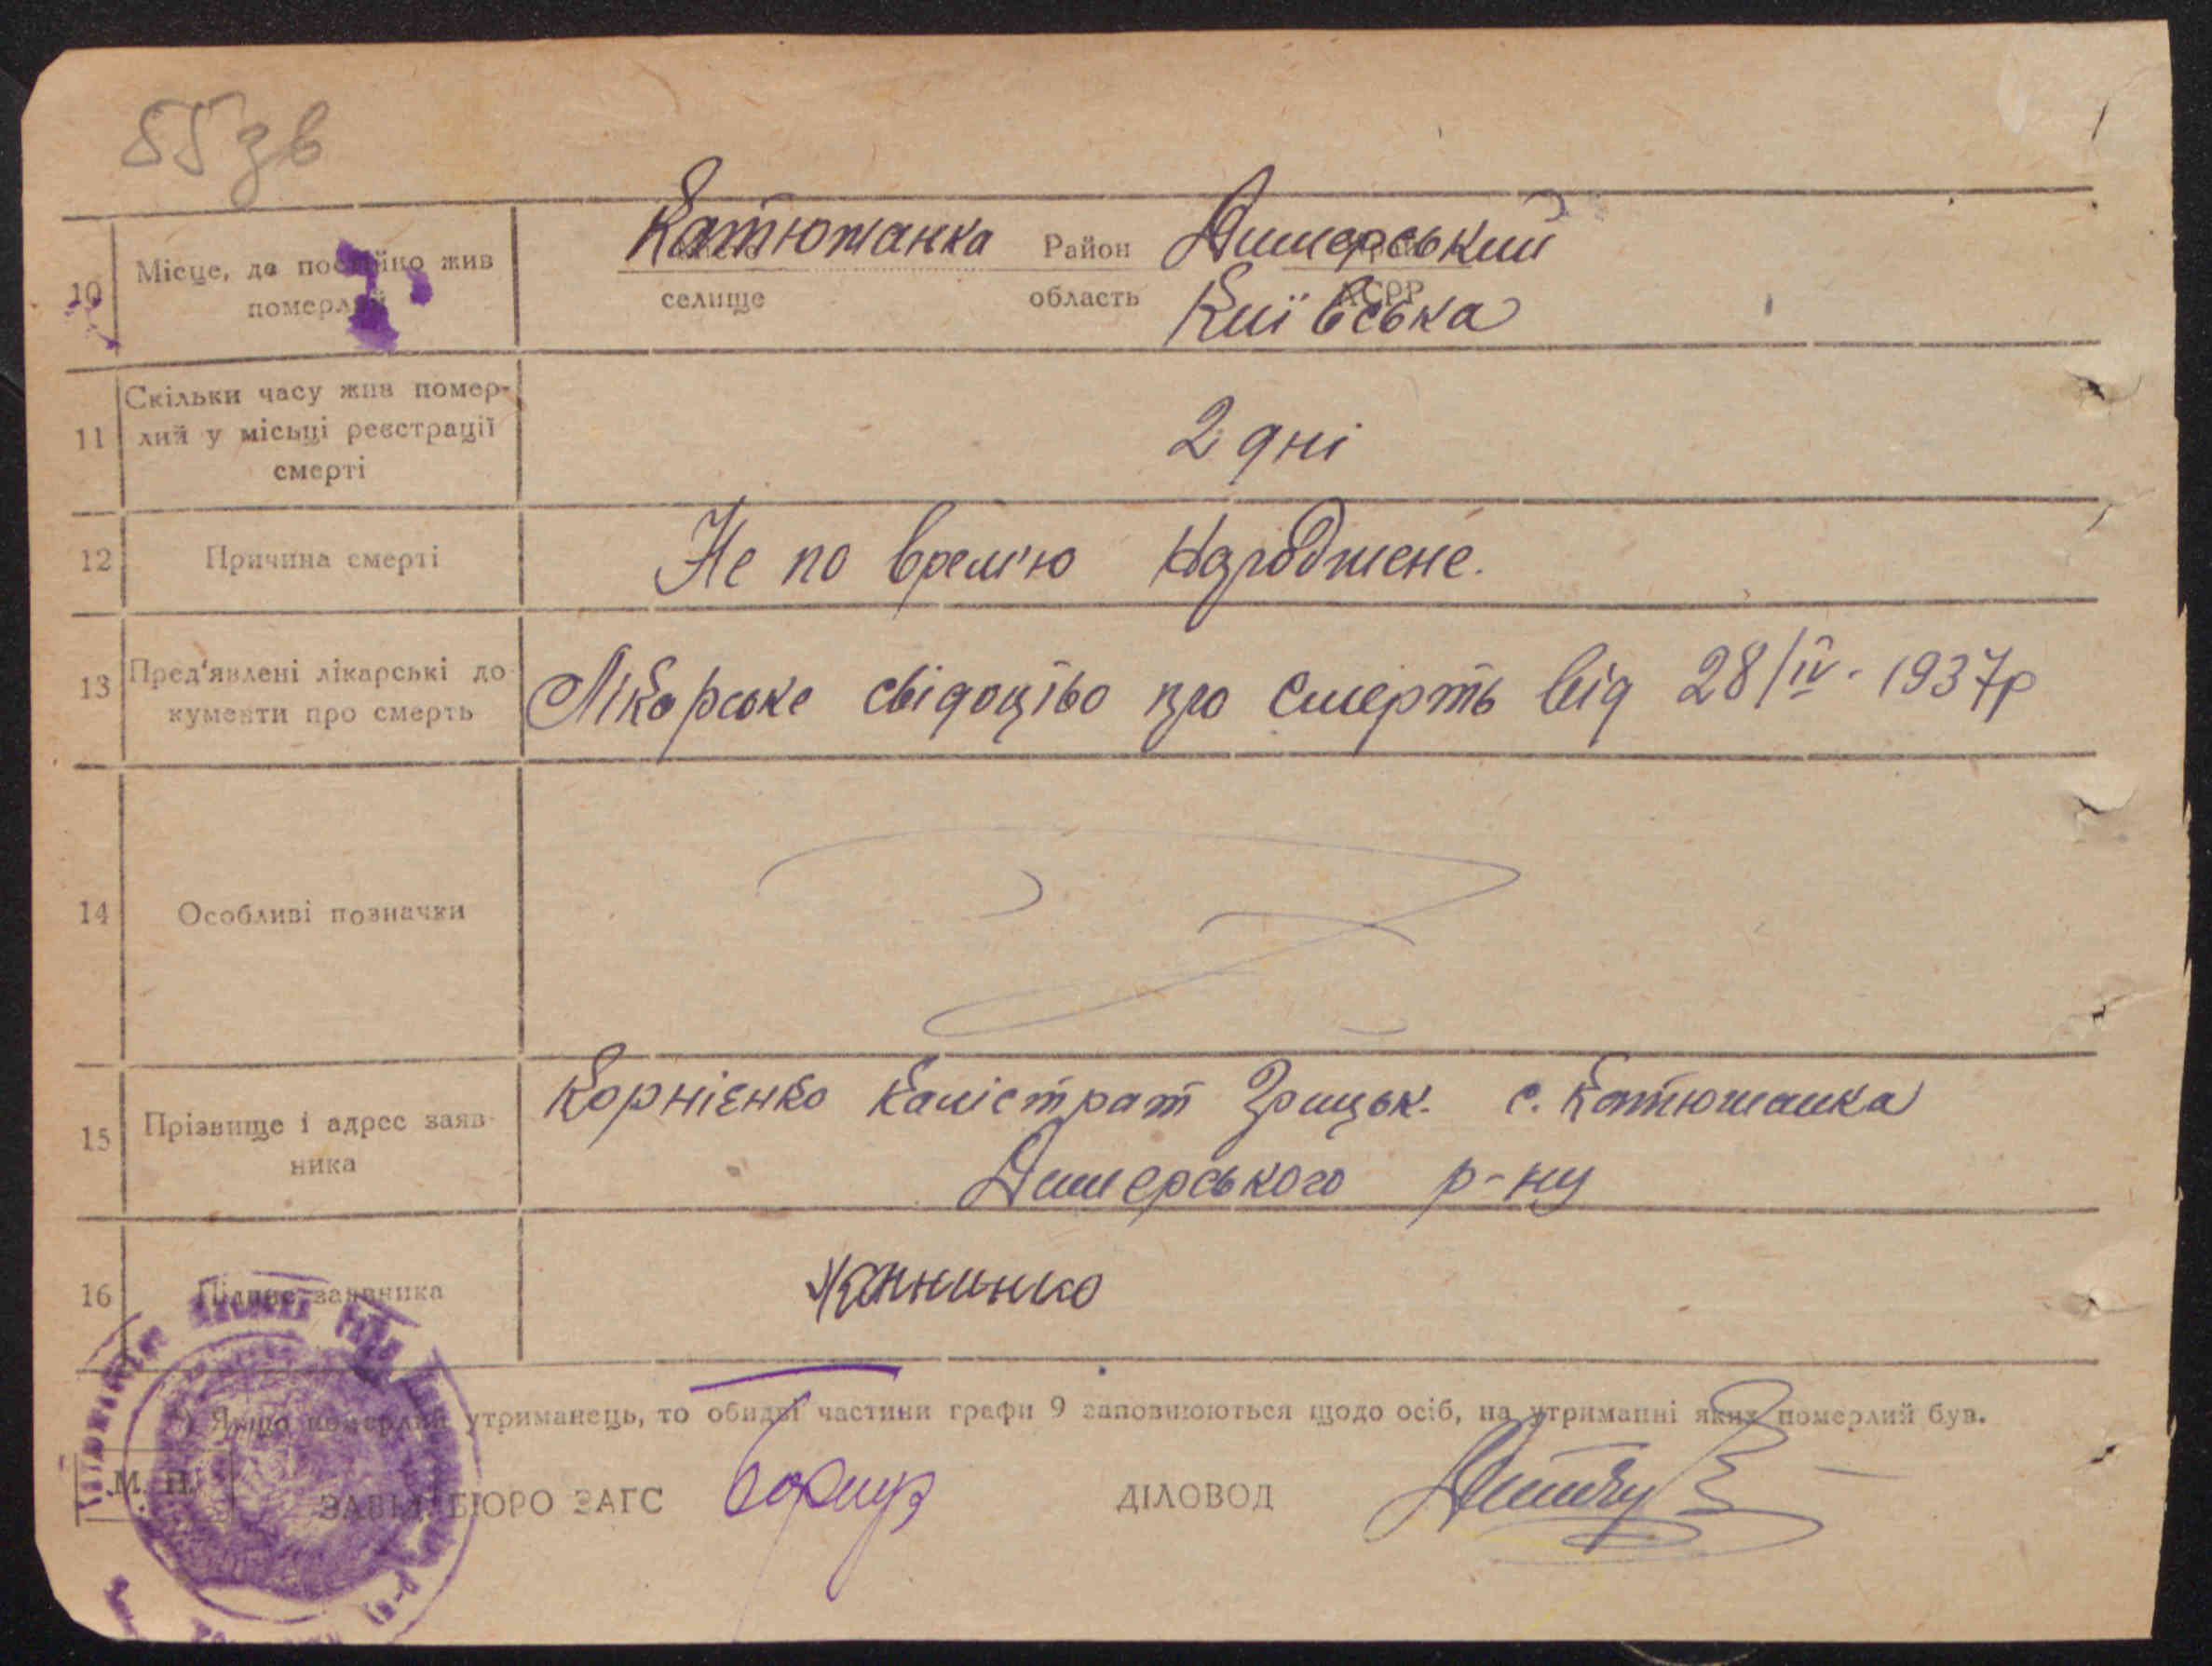 55 зв
10 Місце, де постійно жив Катюжанка Район Димерський
померлий селище область АСРР Київська
Скільки часу жив помер-
11 лий у місьці реєстрації 2 дні
смерті
12 Причина смерті Не по врем'ю народжене.
13 Пред'явлені лікарські до
кументи про смерть Лікарське свідоцтво про смерть від 28/IV - 1937р
14 Особливі позначки
15 Прізвище і адрес заяв- Корнієнко Калістрат Грицьк. с. Катюжанка
ника Димерського р-ну
16 Підпис заявника
*) Якщо померлий утриманець, то обидві частини графи 9 заповнюються щодо осіб, на утриманні яких померлий був.
М. П. ЗАВІД. БЮРО ЗАГС ДІЛОВОД